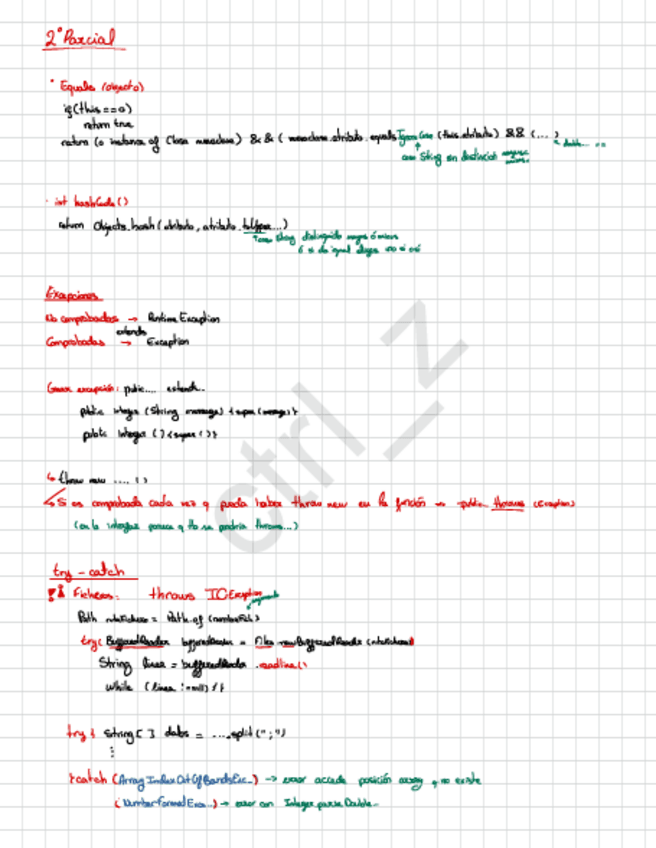 2º Parcial
· Equals (objecto)
if (this == o)
return true
return (o instance of Clase nameclase) && ( nameclase.atributo.equalsIgnoreCase (this.atributo) && (... )
con String sin distinción
· int hashCode()
return Objects.hash (atributo, atributo. ...)
String distinguido mayus ó minus
ó si da igual
Excepciones
No comprobadas → Runtime Exception
extends
Comprobadas → Exception
Generar excepción: public.... extends..
public integer (String mensaje) {super (mensaje)}
public integer () {super ()}
↳ throw new .... ()
↳ Si es comprobada cada vez q pueda haber throw new en la función → public throws (Exception)
(en la integer parece q tb se podría throws...)
try - catch
Ficheros: throws IOException
Path rutaFichero = Path.of (nombreFich)
try( BufferedReader bufferedReader = Files.newBufferedReader (rutaFichero)
String linea = bufferedReader .readline()
while (linea != null) {}
try { String [ ] datos = ....split (";")
⋮
}catch (ArrayIndexOutOfBandsExc..) → error accede posición array q no existe
(NumberFormatExce..) → error con Integer.parse Double..
ctrl_z